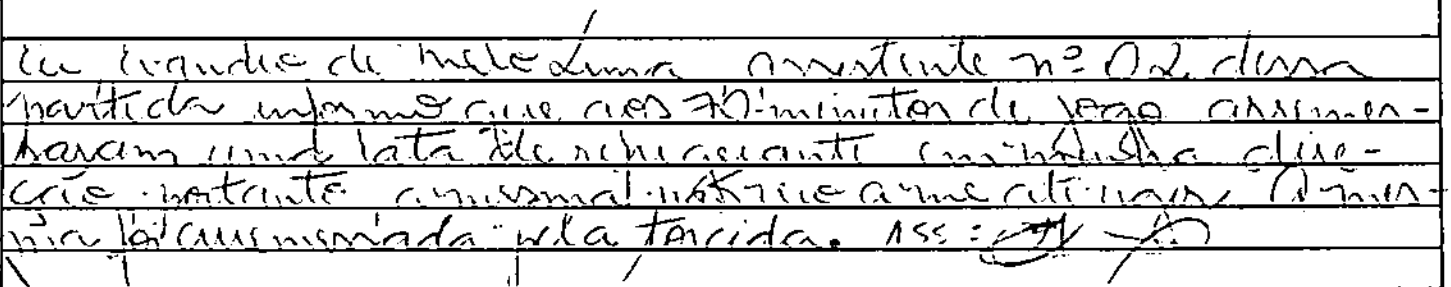 Eu de melo Lima assistente nº 02 dessa
partida informo que aos 70 minutos de jogo arremes-
saram uma lata de refrigerante em minha dire-
ção portanto a mesma não me a mes-
ma foi arremessada pela torcida. Ass: